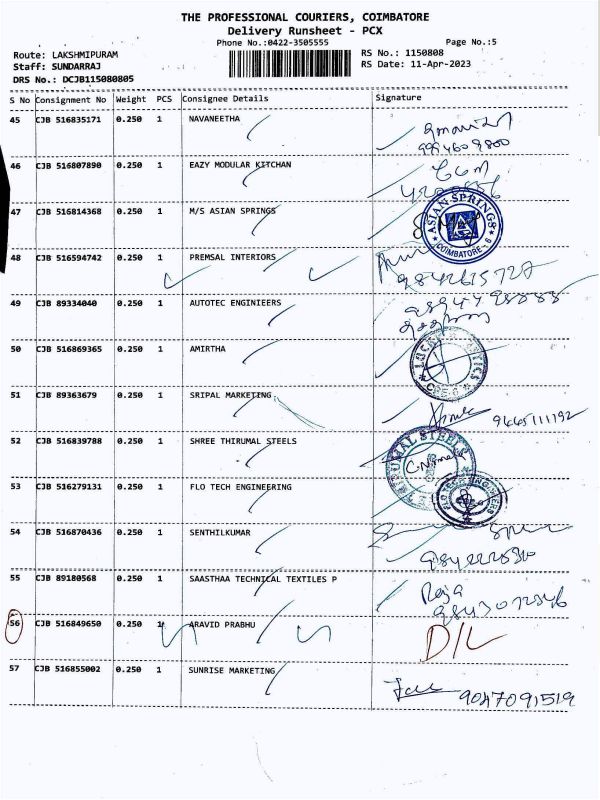 THE PROFESSIONAL COURIERS, COIMBATORE
Delivery Runsheet - PCX
Phone No.:0422-3505555 Page No.:5
Route: LAKSHMIPURAM RS No.: 1150808
Staff: SUNDARRAJ RS Date: 11-Apr-2023
DRS No.: DCJB115080805
S No Consignment No Weight PCS Consignee Details Signature
45 CJB 516835171 0.250 1 NAVANEETHA
9994609800
46 CJB 516807890 0.250 1 EAZY MODULAR KITCHAN
47 CJB 516814368 0.250 1 M/S ASIAN SPRINGS
ASIAN SPRINGS
COIMBATORE - 6
48 CJB 516594742 0.250 1 PREMSAL INTERIORS
9842615727
49 CJB 89334040 0.250 1 AUTOTEC ENGINIEERS
50 CJB 516869365 0.250 1 AMIRTHA
CBE-6
51 CJB 89363679 0.250 1 SRIPAL MARKETING
9445111192
52 CJB 516839788 0.250 1 SHREE THIRUMAL STEELS
THIRUMAL STEELS
53 CJB 516279131 0.250 1 FLO TECH ENGINEERING
FLO TECH ENGINEERS
54 CJB 516870436 0.250 1 SENTHILKUMAR
55 CJB 89180568 0.250 1 SAASTHAA TECHNICAL TEXTILES P
Raja
9843072846
56 CJB 516849650 0.250 1 ARAVID PRABHU
D/L
57 CJB 516855002 0.250 1 SUNRISE MARKETING
9047091519